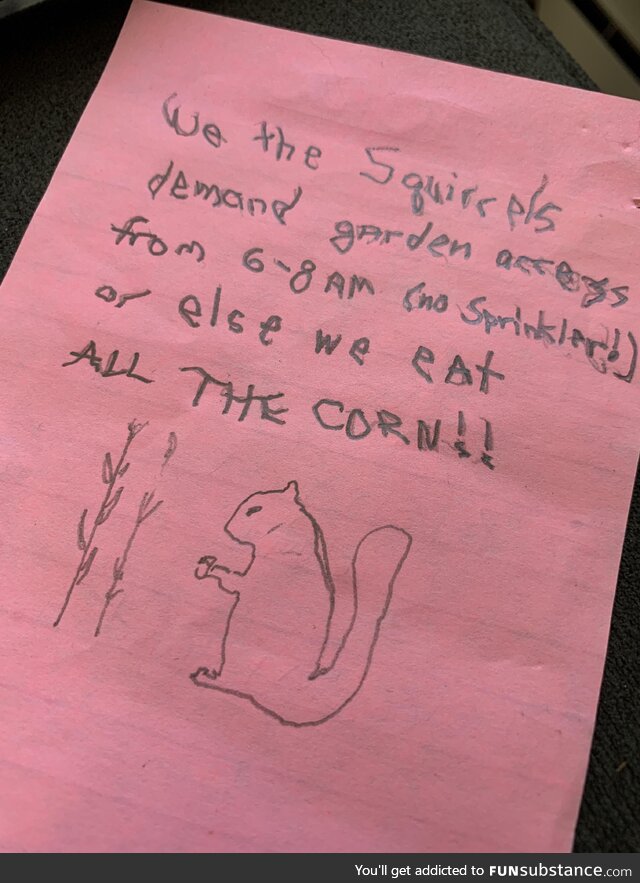 We the Squirrels
demand garden access
from 6-8 AM (no Sprinkler!)
or else we eat
ALL THE CORN!!
You'll get addicted to FUNsubstance.com